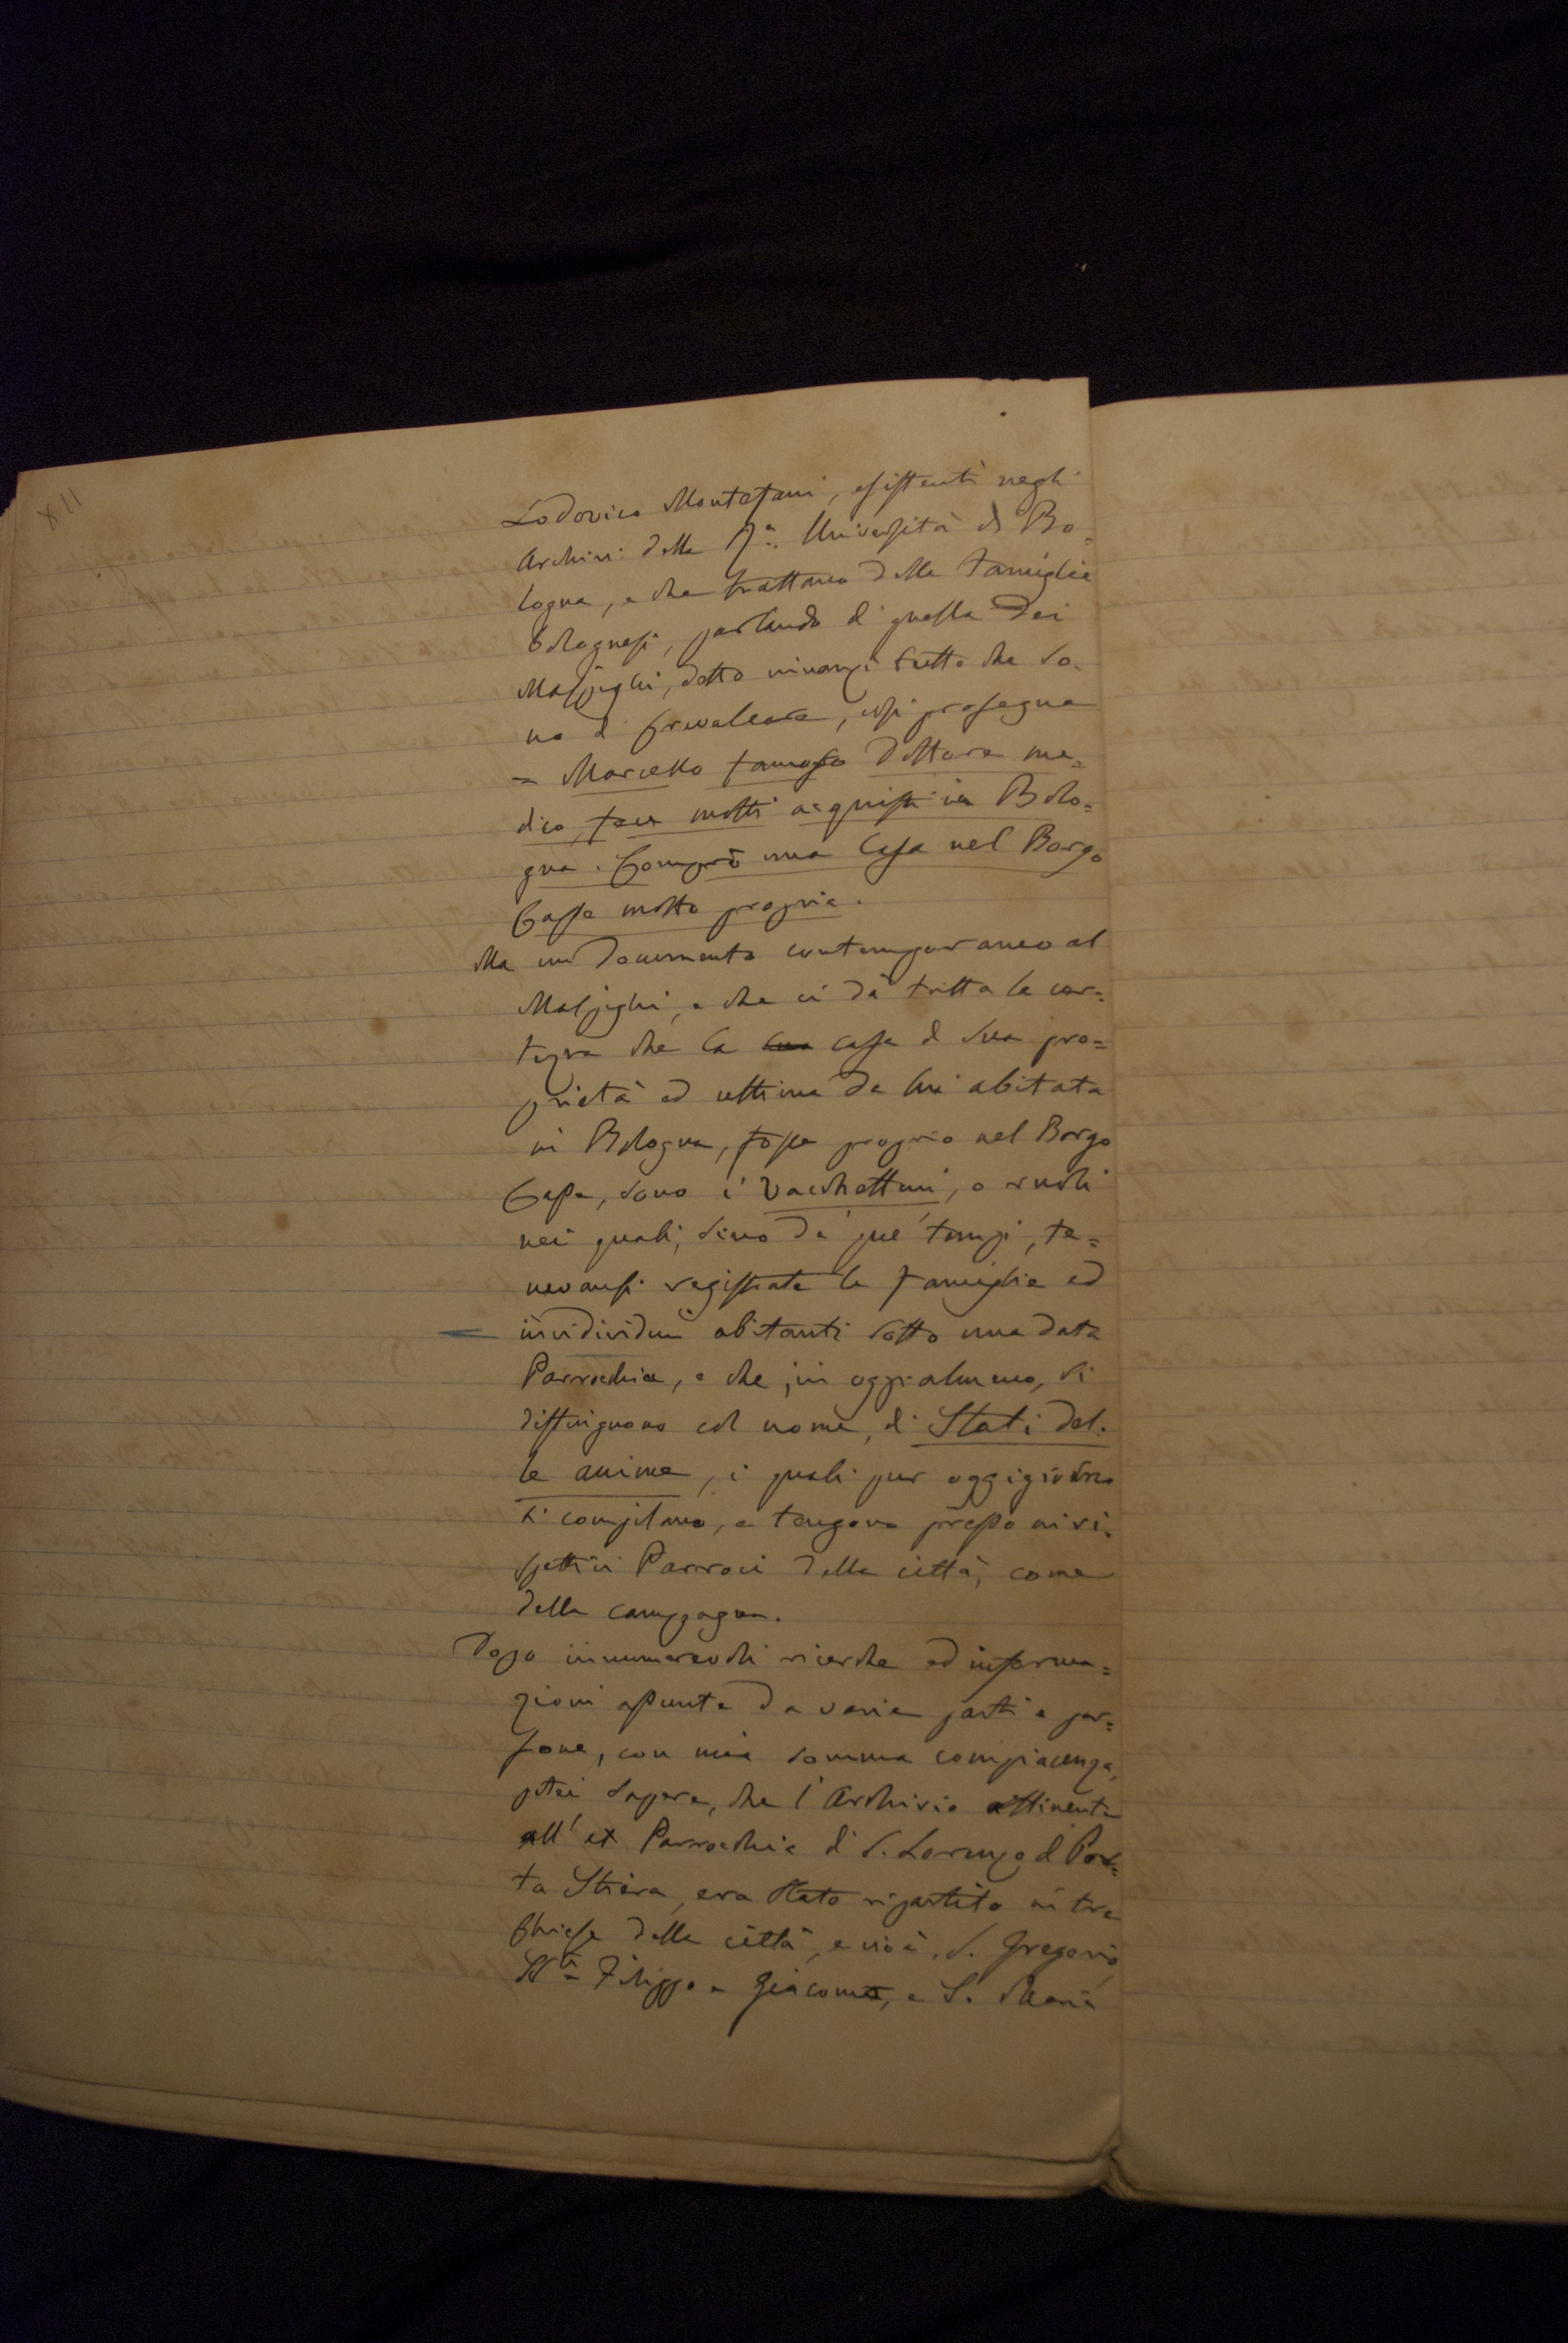 XII
Lodovico Montefani, esistenti negli
Archivi della R.a Università di Bo=
logna, e che trattano delle famiglie
bolognesi, parlando di quella dei
Malpighi, detto innanzi tutto che so=
no di Crevalcore, così prosegue
= Marcello famoso Dottore me=
dico, fece molti acquisti in Bolo=
gna. Comprò una Casa nel Borgo
Casse molto propria.
Ma un documento contemporaneo al
Malpighi, e che ci dà tutta la cer=
tezza che la sua casa di sua pro=
prietà ed ultima da lui abitata
in Bologna, fosse proprio nel Borgo
Casse, sono i Vacchettini, o ruoli
nei quali, sino da que' tempi, te=
nevansi registrate le famiglie ed
individui abitanti sotto una data
Parrochia, e che, in oggi almeno, si
distinguono col nome, di Stati del=
le anime, i quali pur oggigiorno
si compilano, e tengono presso ai ri=
spettivi Parroci della città, come
della campagna.
Dopo innumerevoli ricerche ed informa=
zioni assunte da varie parti e per=
sone, con mia somma compiacenza,
potei sapere, che l'Archivio attinente
all' ex Parrochia di S. Lorenzo di Por=
ta Stiera, era stato ripartito in tre
Chiese della città, e cioè, S. Gregorio,
SS.ti Filippo e Giacomo, e S. Maria